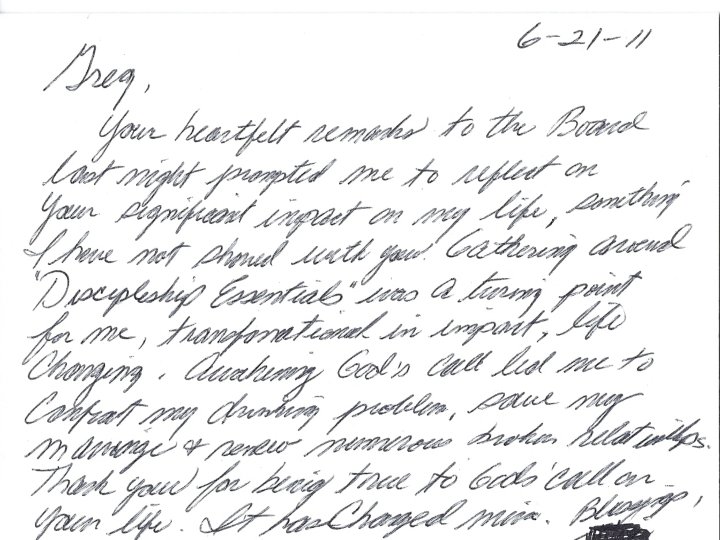 6-21-11
Greg,
Your heartfelt remarks to the Board
last night prompted me to reflect on
your significant impact on my life, something
I have not shared with you. Gathering around
"Discipleship Essentials" was a turing point
for me, transformational in impact, life
changing. Awakening God's call led me to
confront my drinking problem, save my
marriage & renew numerous broken relationships.
Thank you for being true to God's call on
your life. It has changed mine. Blessings,